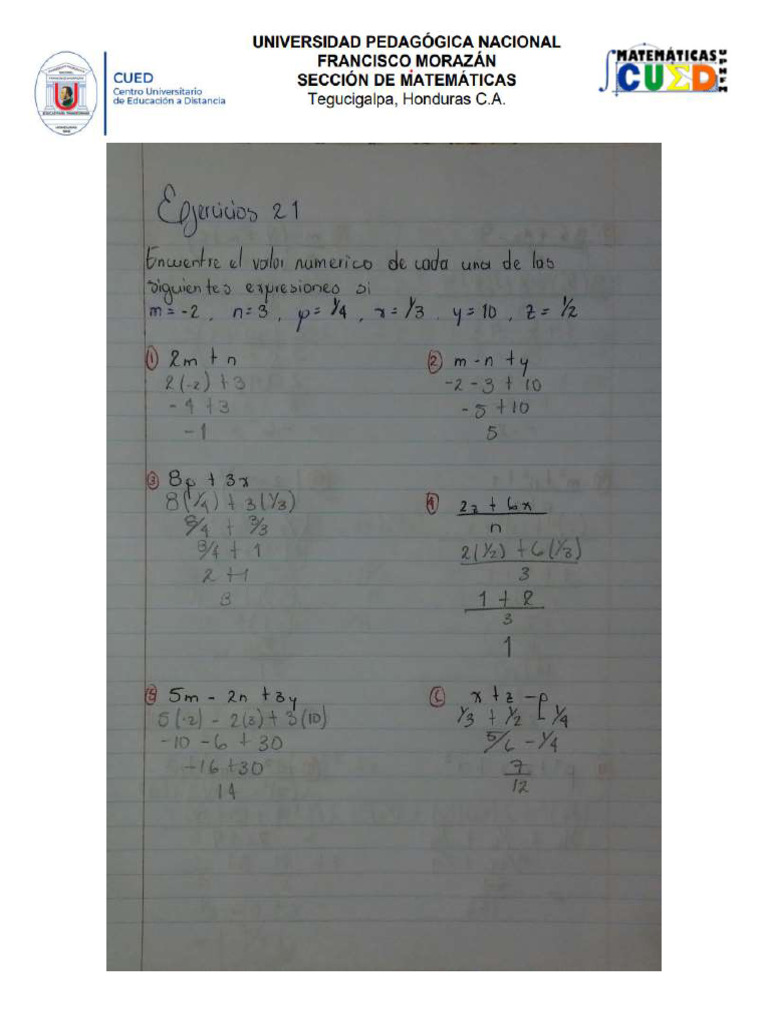 UNIVERSIDAD PEDAGÓGICA NACIONAL
FRANCISCO MORAZÁN
SECCIÓN DE MATEMÁTICAS
Tegucigalpa, Honduras C.A.
CUED
Centro Universitario
de Educación a Distancia
MATEMÁTICAS
CUED
UPNFM
Ejercicios 21
Encuentre el valor numerico de cada una de las
siguientes expresiones si
m = -2 , n = 3 , p = 1/4 , x = 1/3 , y = 10 , z = 1/2
① 2m + n
2(-2) + 3
-4 + 3
-1
② m - n + y
-2 - 3 + 10
-5 + 10
5
③ 8p + 3x
8(1/4) + 3(1/3)
8/4 + 3/3
8/4 + 1
2 + 1
3
④ 2z + 6x
n
2(1/2) + 6(1/3)
3
1 + 2
3
1
⑤ 5m - 2n + 3y
5(-2) - 2(3) + 3(10)
-10 - 6 + 30
-16 + 30
14
⑥ x + z - p
1/3 + 1/2 - 1/4
5/6 - 1/4
7
12